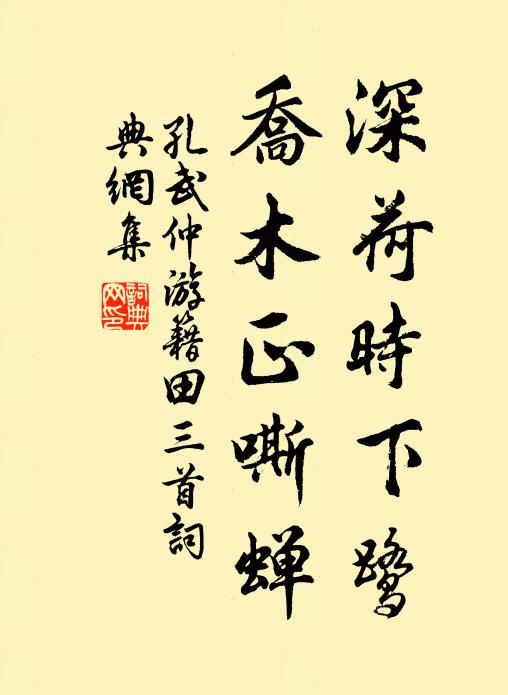 深荷時下鷺
喬木正嘶蟬
孔武仲游籍田三首詞
典網集
詞典
网印